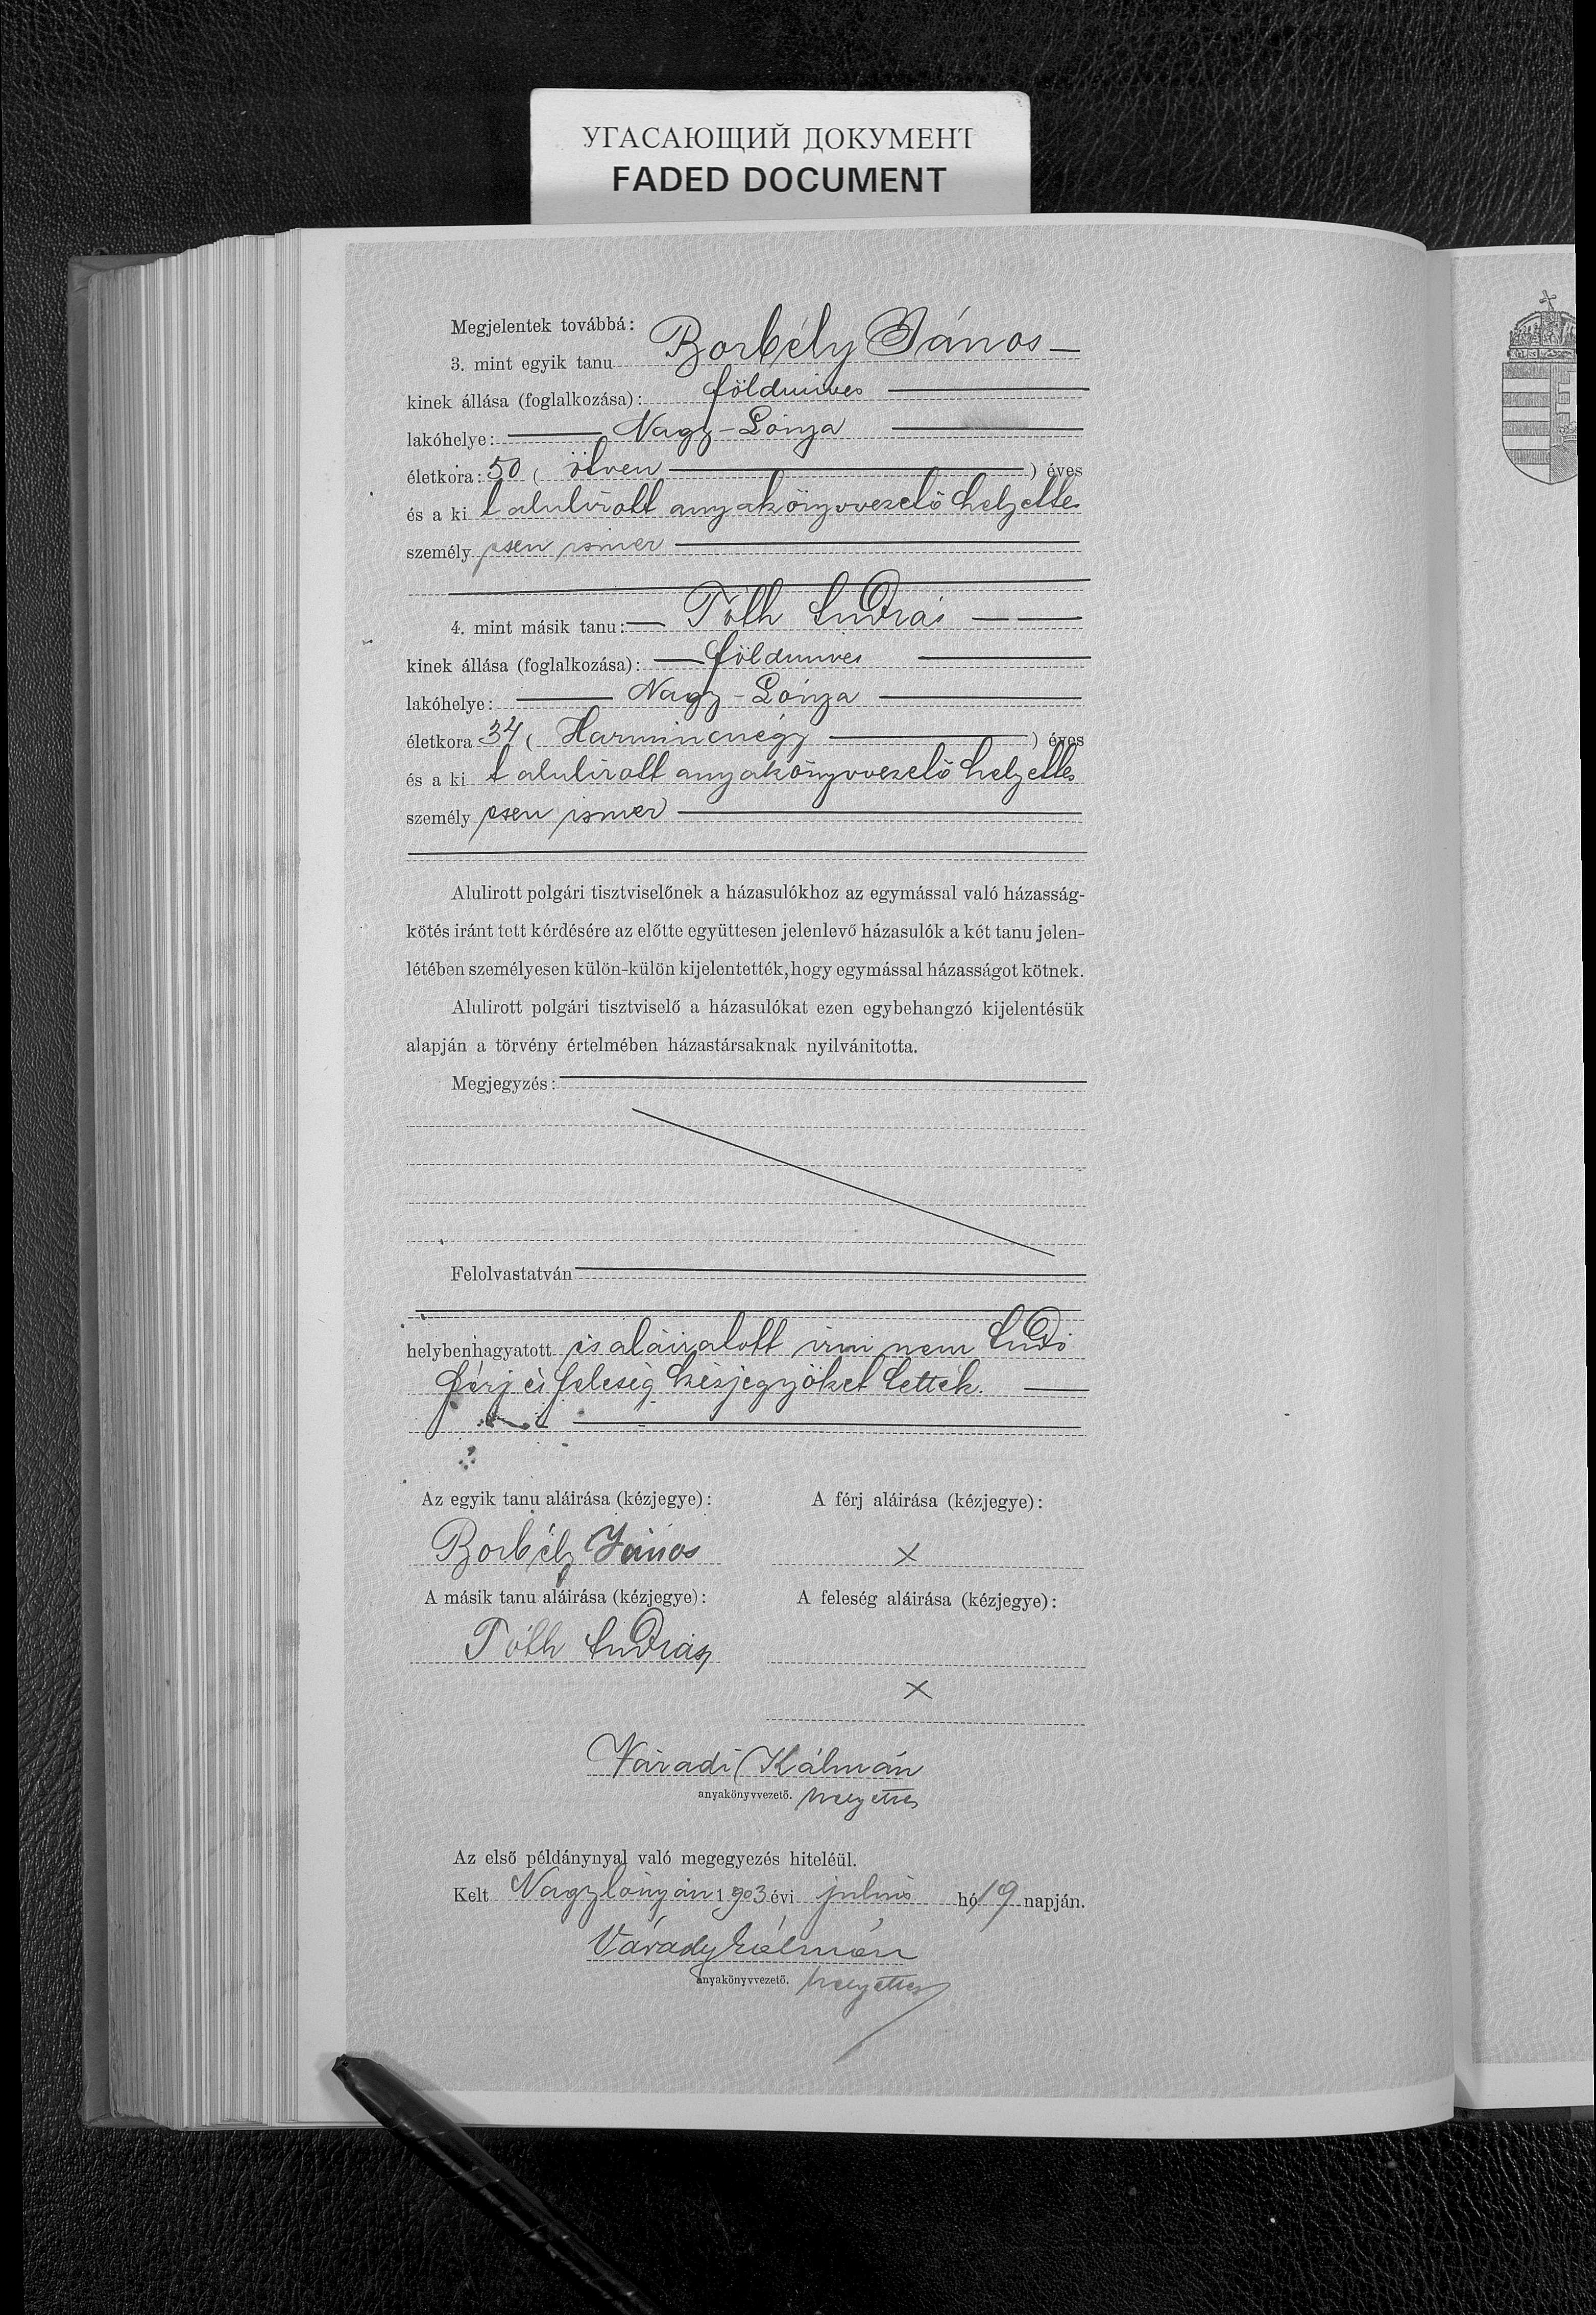 УГАСАЮЩИЙ ДОКУМЕНТ
FADED DOCUMENT
Megjelentek továbbá:
3. mint egyik tanu Borbély János
kinek állása (foglalkozása): földmives
lakóhelye: Nagy-Lónya
életkora: 50 ( ötven ) éves
és a ki t alulirott anyakönyvvezető helyettes
személy esen ismer
4. mint másik tanu: Tóth András
kinek állása (foglalkozása): földmives
lakóhelye: Nagy-Lónya
életkora 34 ( Harmincnégy ) éves
és a ki t alulirott anyakönyvvezető helyettes
személy esen ismer
Alulirott polgári tisztviselőnek a házasulókhoz az egymással való házasság-
kötés iránt tett kérdésére az előtte együttesen jelenlevő házasulók a két tanu jelen-
létében személyesen külön-külön kijelentették, hogy egymással házasságot kötnek.
Alulirott polgári tisztviselő a házasulókat ezen egybehangzó kijelentésük
alapján a törvény értelmében házastársaknak nyilvánitotta.
Megjegyzés:
Felolvastatván
helybenhagyatott és aláiratott irni nem tudó
férj és feleség kézjegyöket tették.
Az egyik tanu aláirása (kézjegye): A férj aláirása (kézjegye):
Borbély János x
A másik tanu aláirása (kézjegye): A feleség aláirása (kézjegye):
Tóth András
x
Váradi Kálmán
anyakönyvvezető. helyettes
Az első példánynyal való megegyezés hiteléül.
Kelt Nagylónyán 1903 évi julius hó 19 napján.
Várady Kálmán
anyakönyvvezető. helyettes